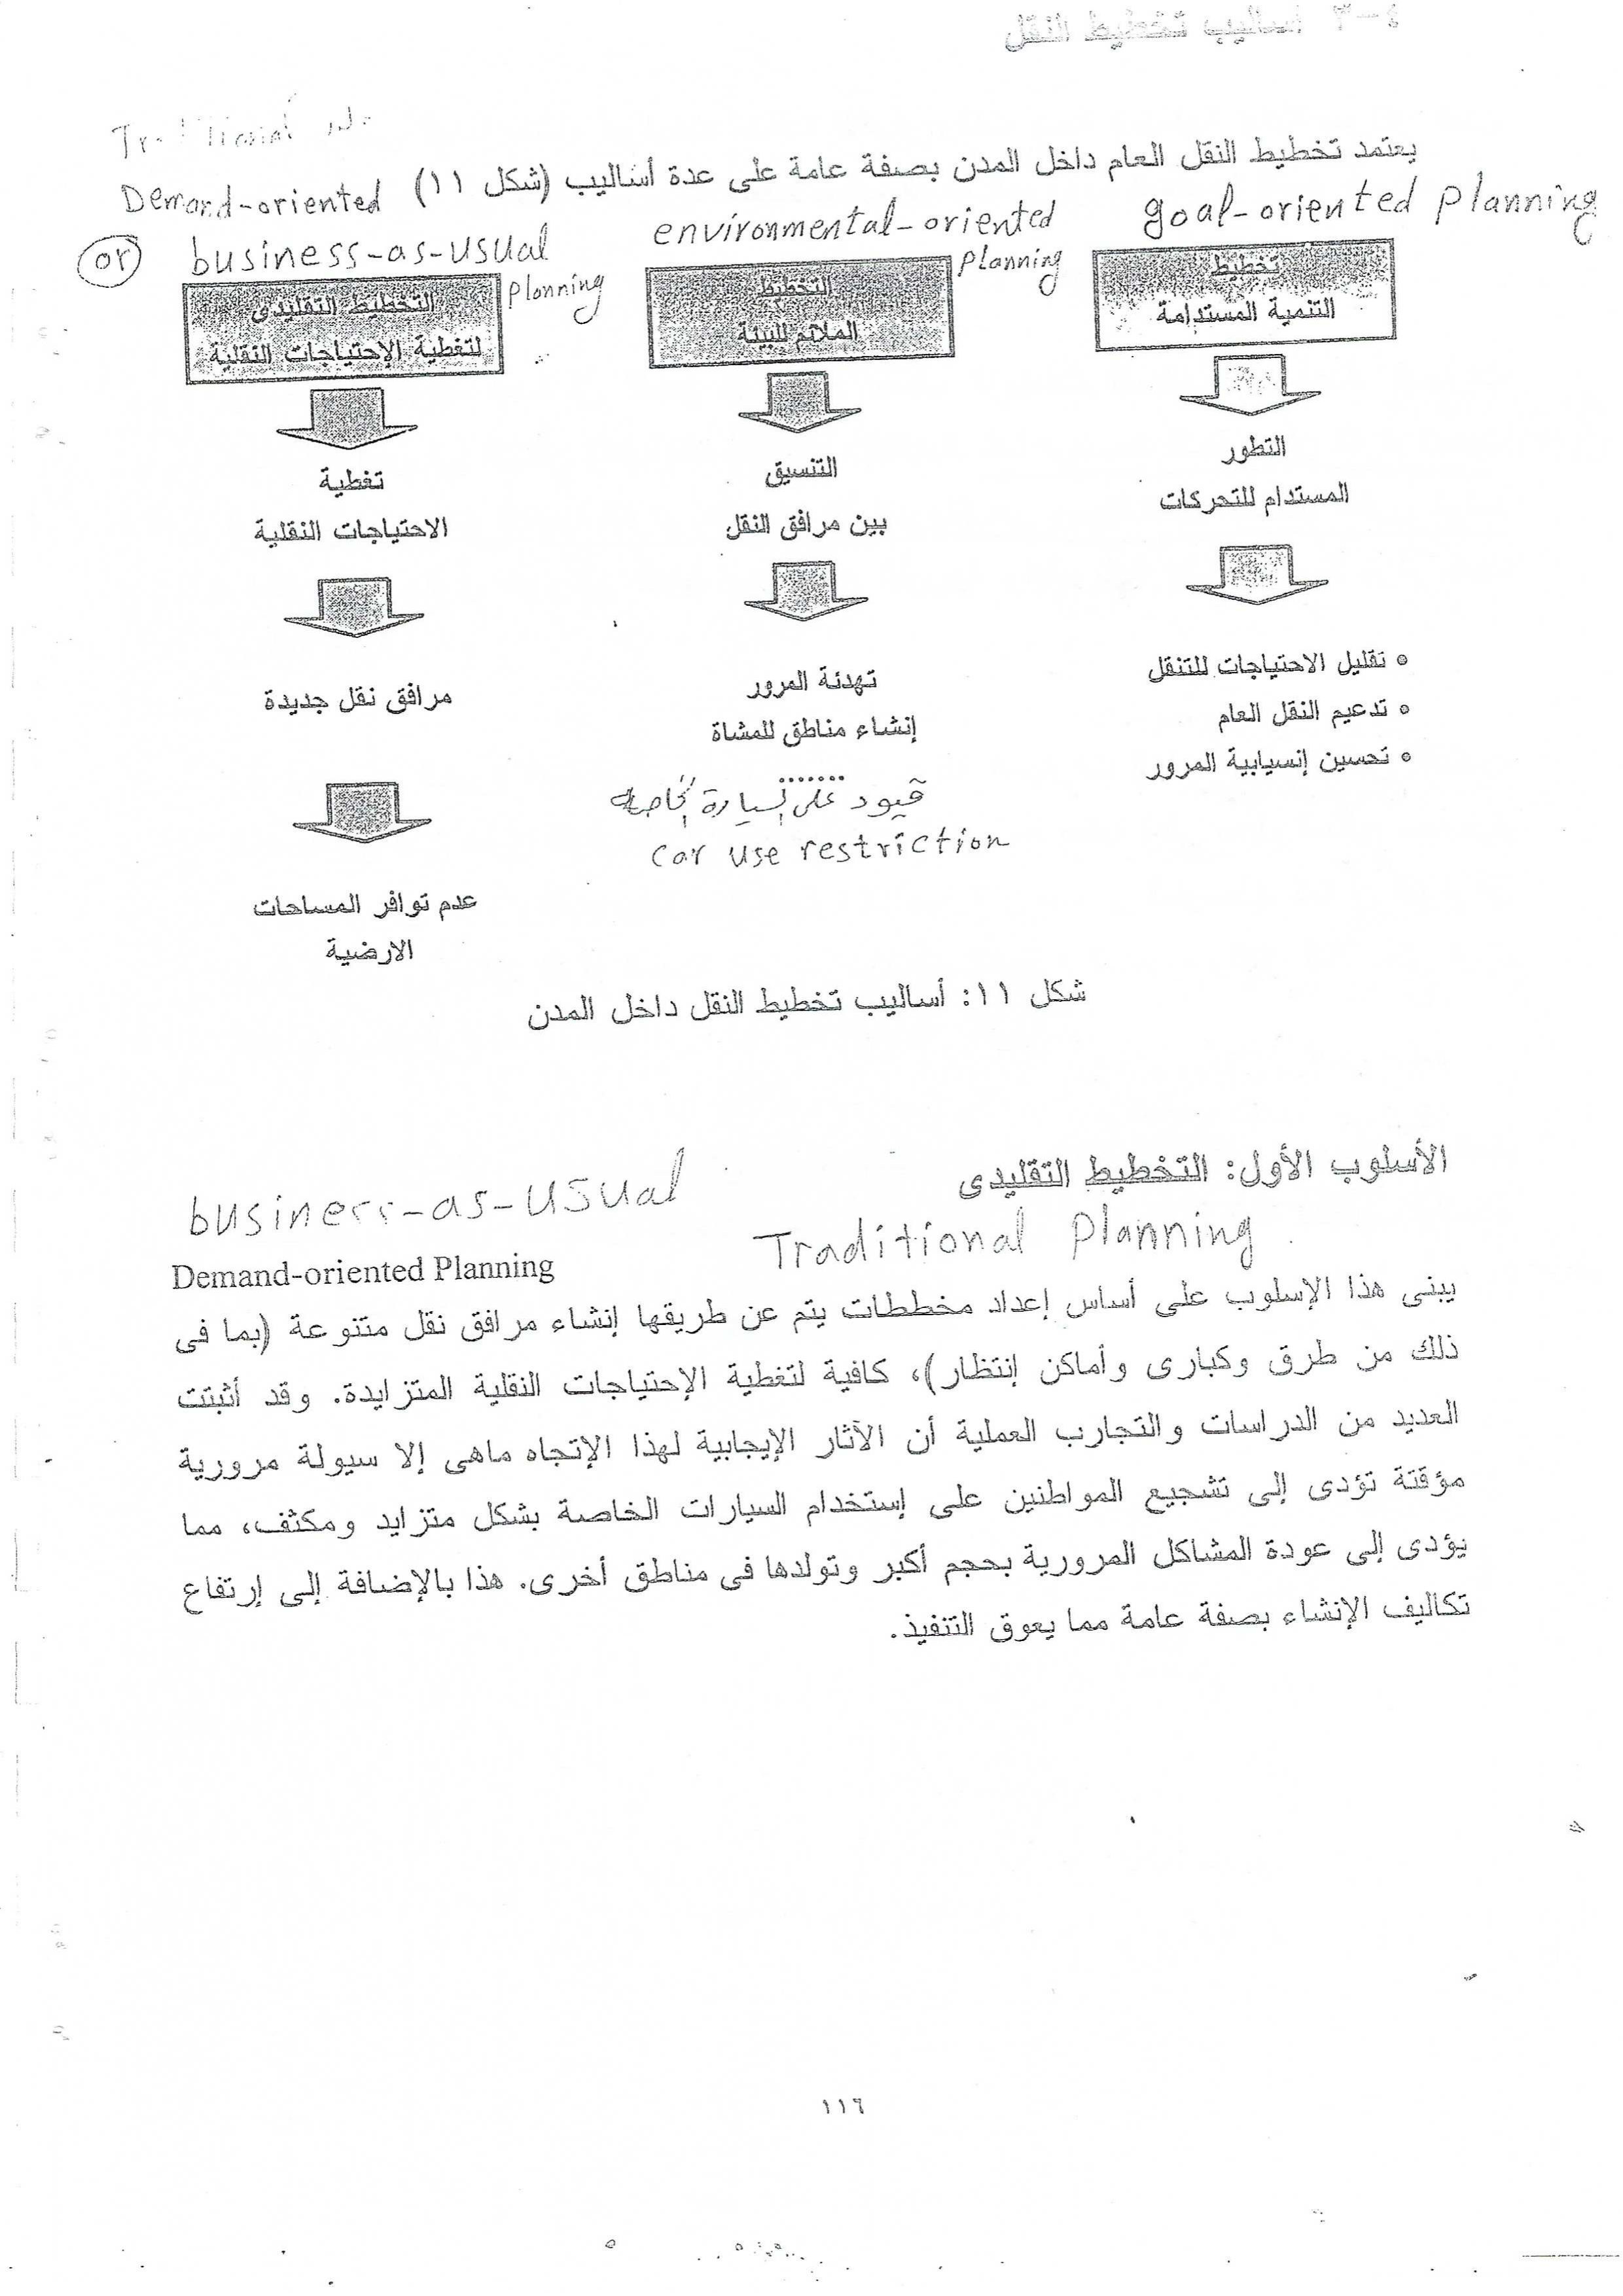 ٤-٣ أساليب تخطيط النقل
يعتمد تخطيط النقل العام داخل المدن بصفة عامة على عدة أساليب (شكل ١١)
Demand-oriented
or business-as-usual planning
environmental-oriented planning
goal-oriented planning
تخطيط
التنمية المستدامة
التطور
المستدام للتحركات
• تقليل الاحتياجات للتنقل
• تدعيم النقل العام
• تحسين إنسيابية المرور
التخطيط
الملائم للبيئة
التنسيق
بين مرافق النقل
تهدئة المرور
إنشاء مناطق للمشاة
.......
قيود على السيارة الخاصة
car use restriction
التخطيط التقليدى
لتغطية الإحتياجات النقلية
تغطية
الاحتياجات النقلية
مرافق نقل جديدة
عدم توافر المساحات
الارضية
شكل ١١: أساليب تخطيط النقل داخل المدن
الأسلوب الأول: التخطيط التقليدى
business-as-usual
Traditional Planning
Demand-oriented Planning
يبنى هذا الإسلوب على أساس إعداد مخططات يتم عن طريقها إنشاء مرافق نقل متنوعة (بما فى
ذلك من طرق وكبارى وأماكن إنتظار)، كافية لتغطية الإحتياجات النقلية المتزايدة. وقد أثبتت
العديد من الدراسات والتجارب العملية أن الآثار الإيجابية لهذا الإتجاه ماهى إلا سيولة مرورية
مؤقتة تؤدى إلى تشجيع المواطنين على إستخدام السيارات الخاصة بشكل متزايد ومكثف، مما
يؤدى إلى عودة المشاكل المرورية بحجم أكبر وتولدها فى مناطق أخرى. هذا بالإضافة إلى إرتفاع
تكاليف الإنشاء بصفة عامة مما يعوق التنفيذ.
١١٦